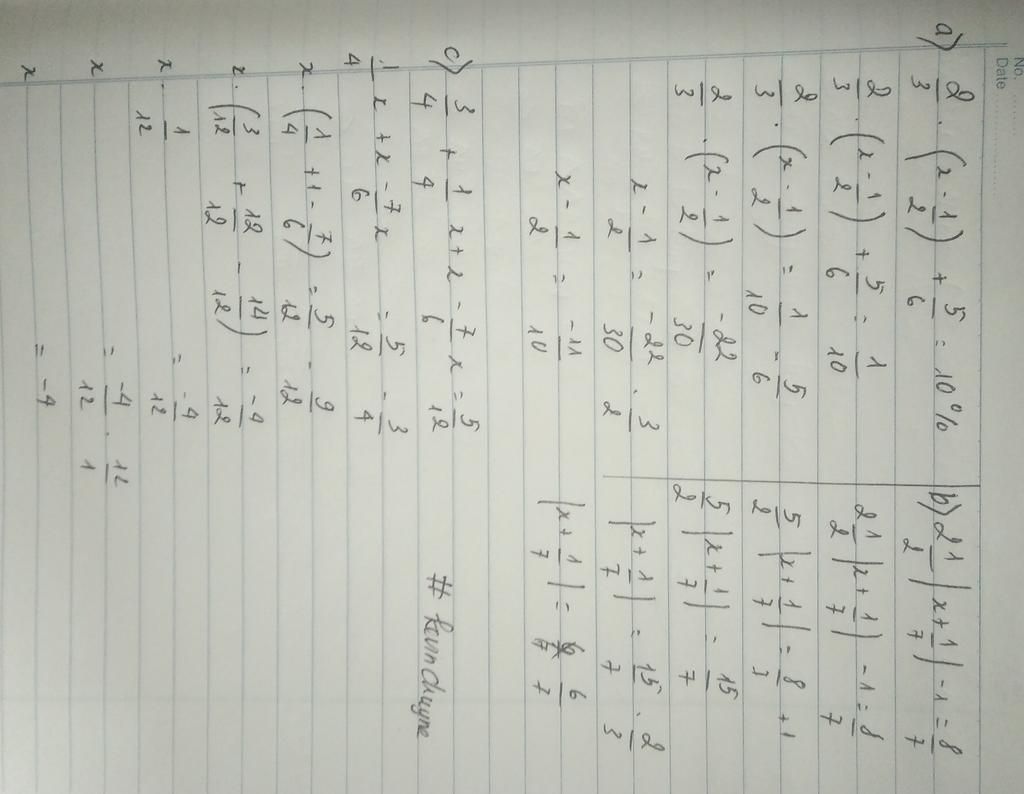 No. ........
Date ........
a) 2/3 . (x - 1/2) + 5/6 = 10%
2/3 . (x - 1/2) + 5/6 = 1/10
2/3 . (x - 1/2) = 1/10 - 5/6
2/3 . (x - 1/2) = -22/30
x - 1/2 = -22/30 . 3/2
x - 1/2 = -11/10
b) 2 1/2 |x + 1/7| - 1 = 8/7
2 1/2 |x + 1/7| - 1 = 8/7
5/2 |x + 1/7| = 8/7 + 1
5/2 |x + 1/7| = 15/7
|x + 1/7| = 15/7 . 2/3
|x + 1/7| = 6/7
c) 3/4 + 1/4 x + x - 7/6 x = 5/12
1/4 x + x - 7/6 x = 5/12 - 3/4
x . (1/4 + 1 - 7/6) = 5/12 - 9/12
x . (3/12 + 12/12 - 14/12) = -4/12
x . 1/12 = -4/12
x = -4/12 . 12/1
x = -4